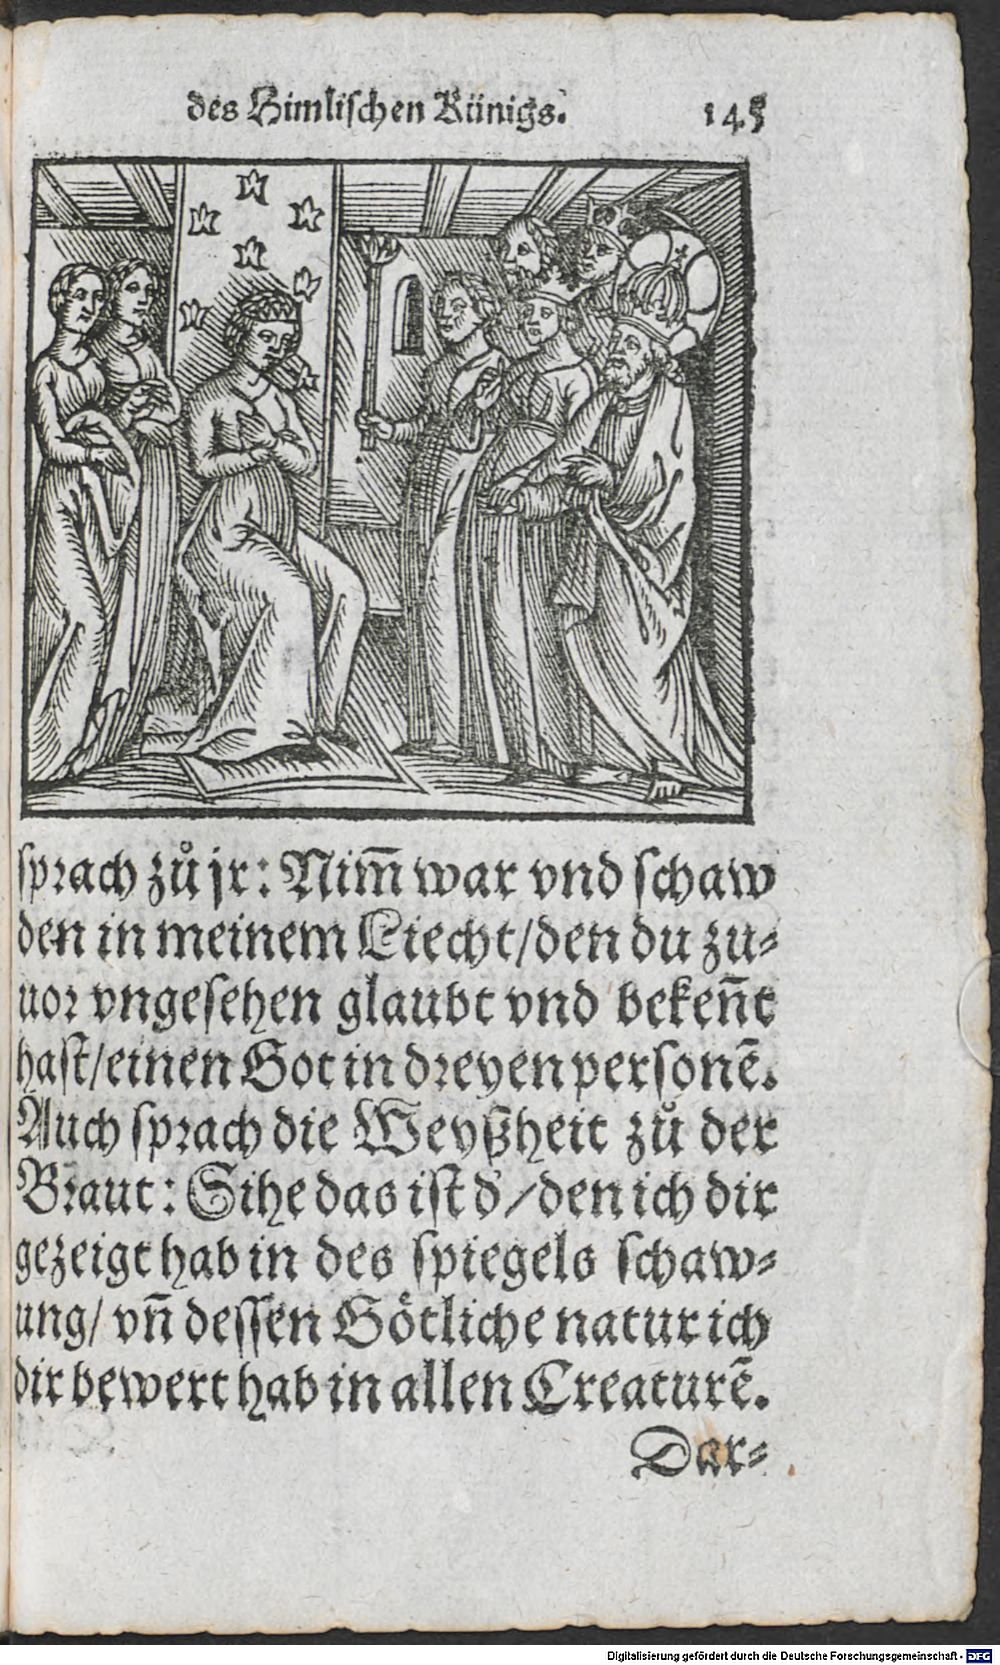 des Himlischen Künigs. 145
sprach zů jr: Nim̃ war vnd schaw
den in meinem Liecht/den du zu⸗
uor vngesehen glaubt vnd bekeñt
hast/einen Got in dreyen personẽ.
Auch sprach die Weyßheit zů der
Braut: Sihe das ist d'/den ich dir
gezeigt hab in des spiegels schaw⸗
ung/ vñ dessen Götliche natur ich
dir bewert hab in allen Creaturẽ.
Dar⸗
Digitalisierung gefördert durch die Deutsche Forschungsgemeinschaft - DFG